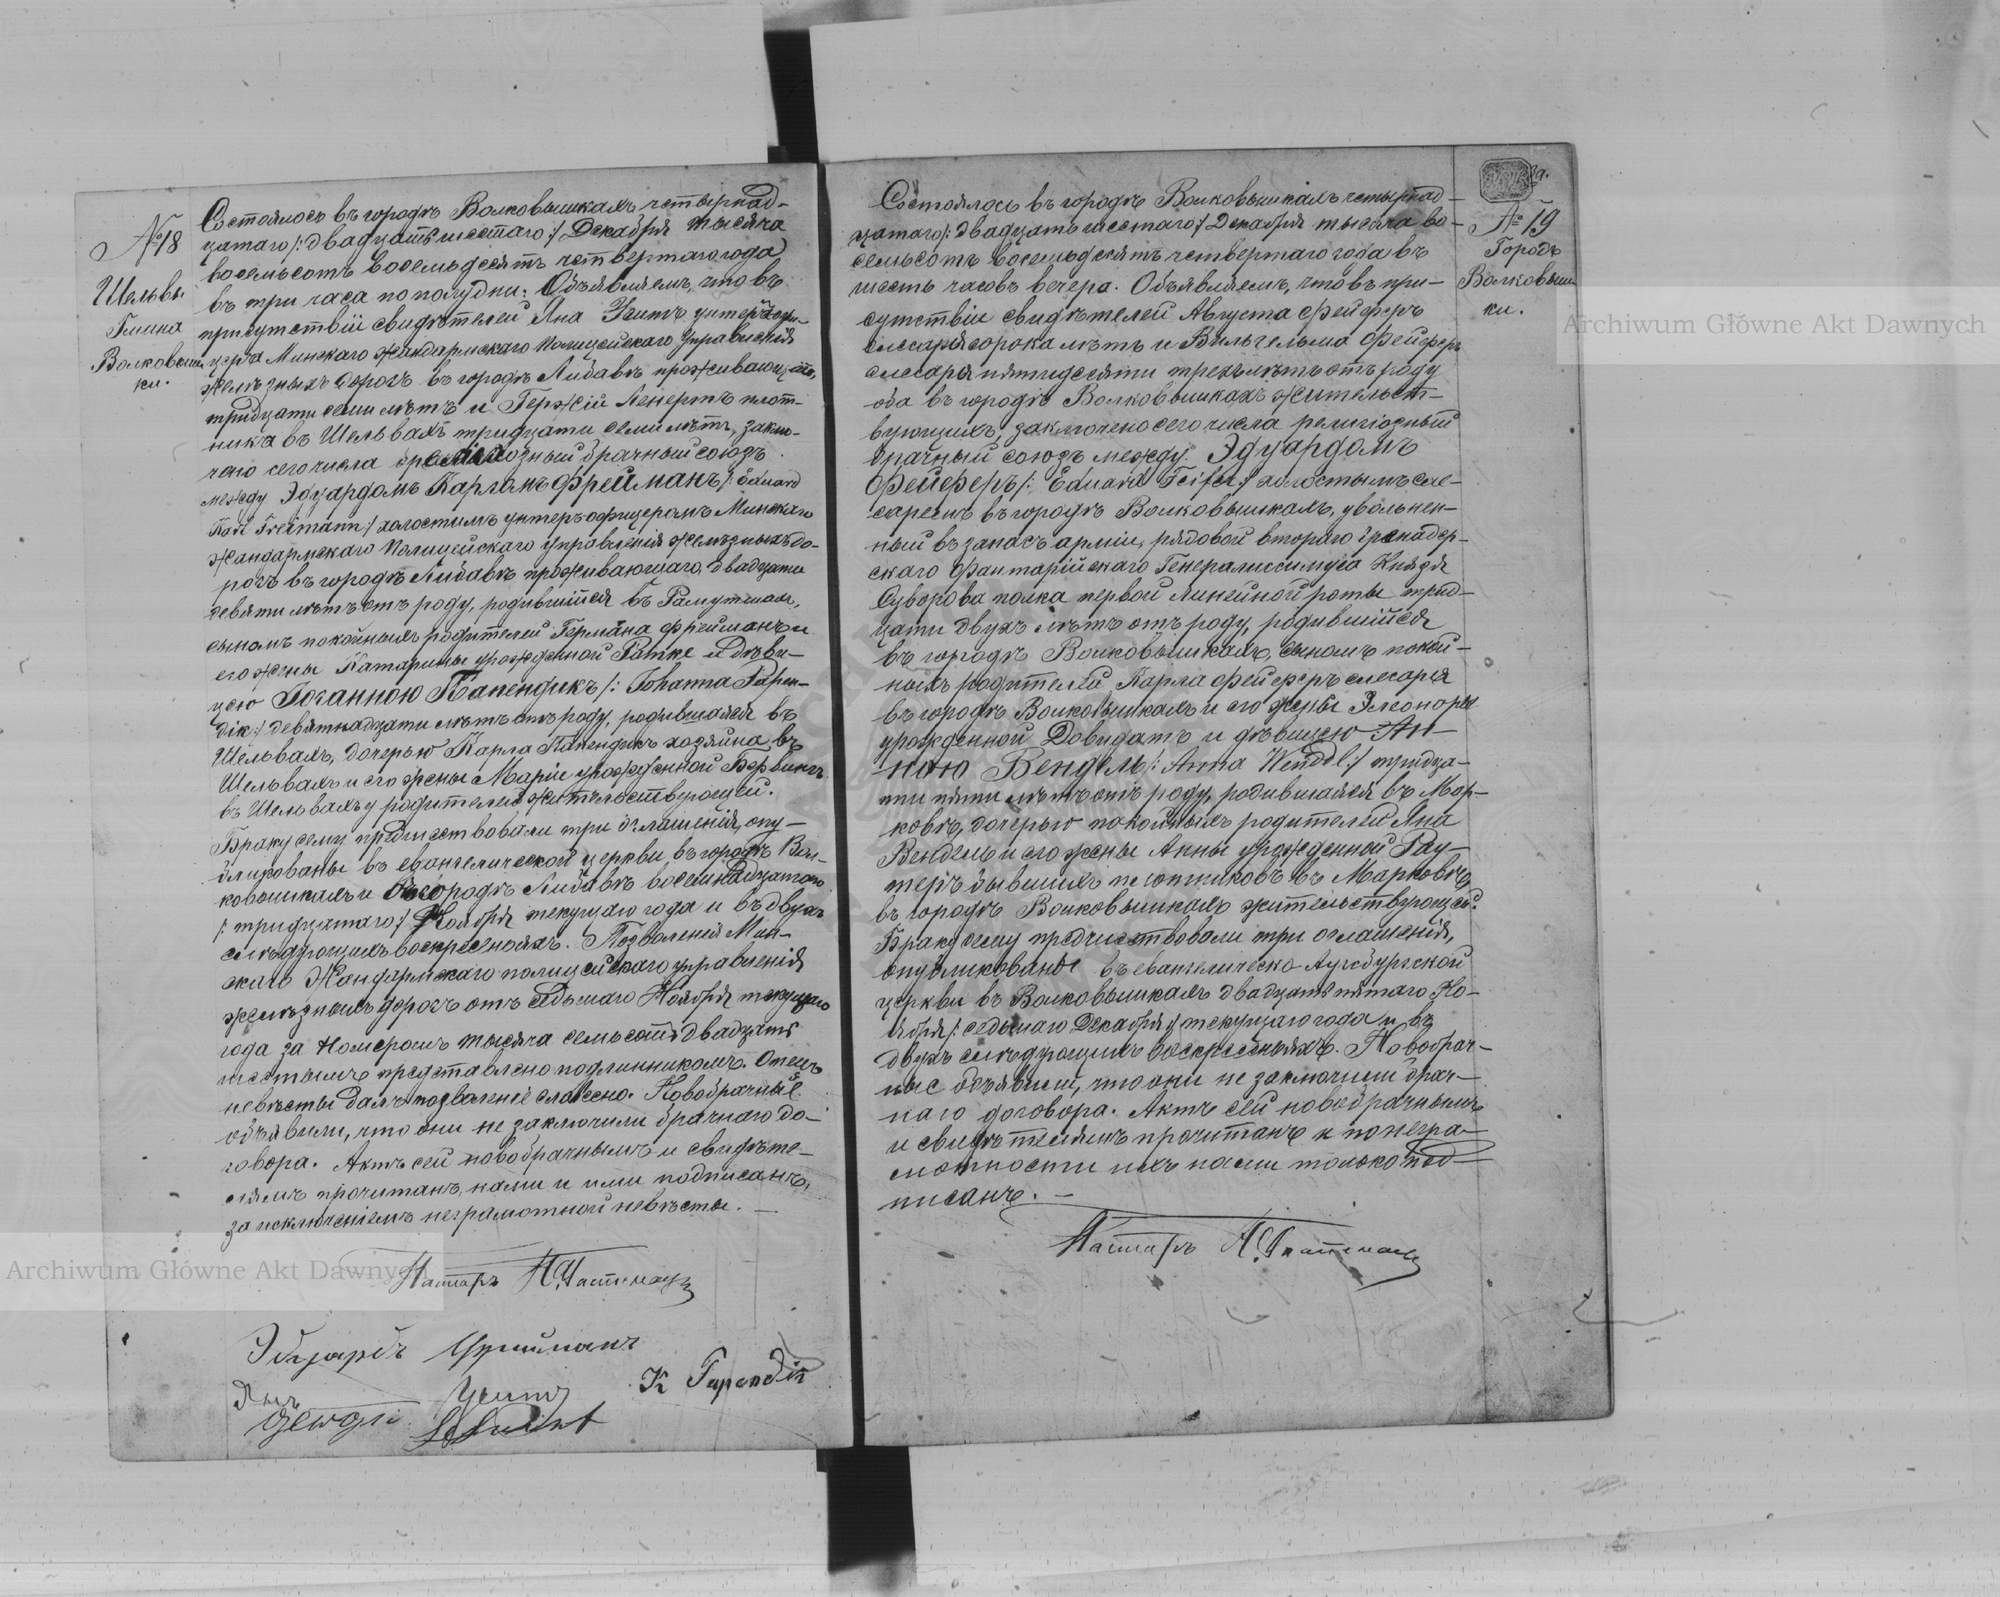 № 18
Шельвы
Гмина
Волковыш
ки.
Состоялось въ городѣ Волковышкахъ четырнад-
цатаго /: двадцать шестаго :/ Декабря тысяча
восемьсотъ восемьдесятъ четвертаго года
въ три часа пополудни. Объявляемъ, что въ
присутствіи свидѣтелей Яна унтеръ офи-
цера Минскаго жандармскаго Полицейскаго Управленія
желѣзныхъ дорогъ въ городѣ Либавѣ проживающаго,
тридцати семи лѣтъ и Гержій Ленертъ плот-
ника въ Шельвахъ тридцати семи лѣтъ, заклю-
чено сего числа религіозный брачный союзъ
между Эдуардомъ Карломъ Фрейманъ /: Eduard
Karl Freimann :/ холостымъ унтеръ офицеромъ Минскаго
жандармскаго Полицейскаго Управленія желѣзныхъ до-
рогъ въ городѣ Либавѣ проживающаго, двадцати
девяти лѣтъ отъ роду, родившійся въ
сыномъ покойныхъ родителей Германа Фрейманъ и
его жены Катарины урожденной Ратке и дѣви-
цею Іоганною Папендикъ /: Johanna Papen-
dik :/ девятнадцати лѣтъ отъ роду, родившаяся въ
Шельвахъ, дочерью Карла Папендикъ хозяина въ
Шельвахъ и его жены Маріи урожденной
въ Шельвахъ у родителей жительствующей.
Браку сему предшествовали три оглашенія, опу-
бликованы въ евангелической церкви въ городѣ Вол-
ковышкахъ и въ городѣ Либавѣ восемнадцатаго
/: тридцатаго :/ Ноября текущаго года и въ двухъ
слѣдующихъ воскресеньяхъ. Позволеніе Мин-
скаго Жандармскаго полицейскаго управленія
желѣзныхъ дорогъ отъ седьмаго Ноября текущаго
года за номеромъ тысяча семьсотъ двадцать
шестымъ представлено подлинникомъ. Отецъ
невѣсты далъ позволеніе словесно. Новобрачные
объявили, что они не заключили брачнаго до-
говора. Актъ сей новобрачнымъ и свидѣте-
лямъ прочитанъ, нами и ими подписанъ,
за исключеніемъ неграмотной невѣсты. —
Пасторъ
Эдуардъ Фрейманъ
Янъ
K Papendik
№ 19
Городъ
Волковыш
ки.
Состоялось въ городѣ Волковышкахъ четырнад-
цатаго /: двадцать шестаго :/ Декабря тысяча во-
семьсотъ восемьдесятъ четвертаго года въ
шесть часовъ вечера. Объявляемъ, что въ при-
сутствіи свидѣтелей Августа Фейферъ
слесаря сорока лѣтъ и Вильгельма Фейферъ
слесаря пятидесяти трехъ лѣтъ отъ роду
оба въ городѣ Волковышкахъ жительст-
вующихъ, заключено сего числа религіозный
брачный союзъ между Эдуардомъ
Фейферъ /: Eduard Feifer :/ холостымъ сле-
саремъ въ городѣ Волковышкахъ, уволен-
ный въ запасъ арміи, рядовой втораго Гренадер-
скаго Генералиссимуса Князя
Суворова полка первой линейной роты трид-
цати двухъ лѣтъ отъ роду, родившійся
въ городѣ Волковышкахъ, сыномъ покой-
ныхъ родителей Карла Фейферъ слесаря
въ городѣ Волковышкахъ и его жены Элеоноры
урожденной Довидатъ и дѣвицею Ан-
ною Вендель /: Anna Wendel :/ тридца-
ти пяти лѣтъ отъ роду, родившаяся въ Мар-
ковѣ, дочерью покойныхъ родителей Яна
Вендель и его жены Анны урожденной Рау-
теръ бывшихъ въ Марковѣ,
въ городѣ Волковышкахъ жительствующей.
Браку сему предшествовали три оглашенія,
опубликованы въ евангелическо Аугсбургской
церкви въ Волковышкахъ двадцать пятаго Но-
ября /: седьмаго Декабря :/ текущаго года и въ
двухъ слѣдующихъ воскресеньяхъ. Новобрач-
ные объявили, что они не заключили брач-
наго договора. Актъ сей новобрачнымъ
и свидѣтелямъ прочитанъ и по негра-
мотности ихъ нами только под-
писанъ. —
Пасторъ
Archiwum Główne Akt Dawnych
Archiwum Główne Akt Dawnych